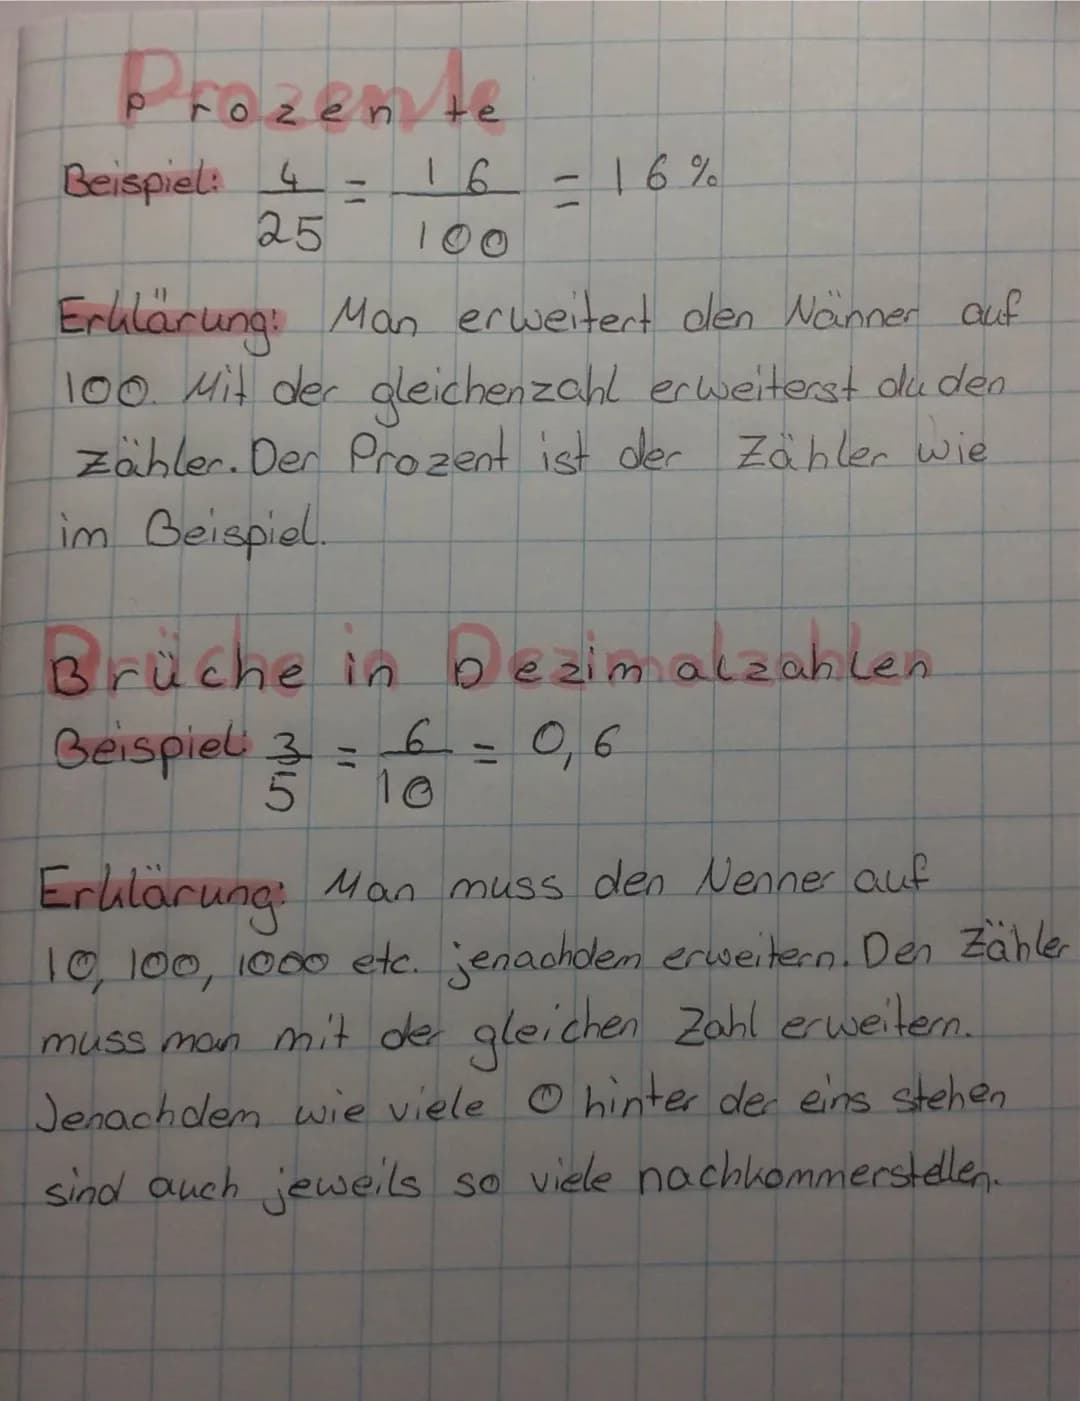 Prozente
Beispiel: 4/25 = 16/100 = 16%
Erklärung: Man erweitert den Nänner auf
100. Mit der gleichenzahl erweiterst du den
zähler. Der Prozent ist der Zähler wie
im Beispiel.
Brüche in Dezimalzahlen
Beispiel: 3/5 = 6/10 = 0,6
Erklärung: Man muss den Nenner auf
10, 100, 1000 etc. jenachdem erweitern. Den Zähler
muss man mit der gleichen Zahl erweitern.
Jenachdem wie viele 0 hinter der eins stehen
sind auch jeweils so viele nachkommerstellen.